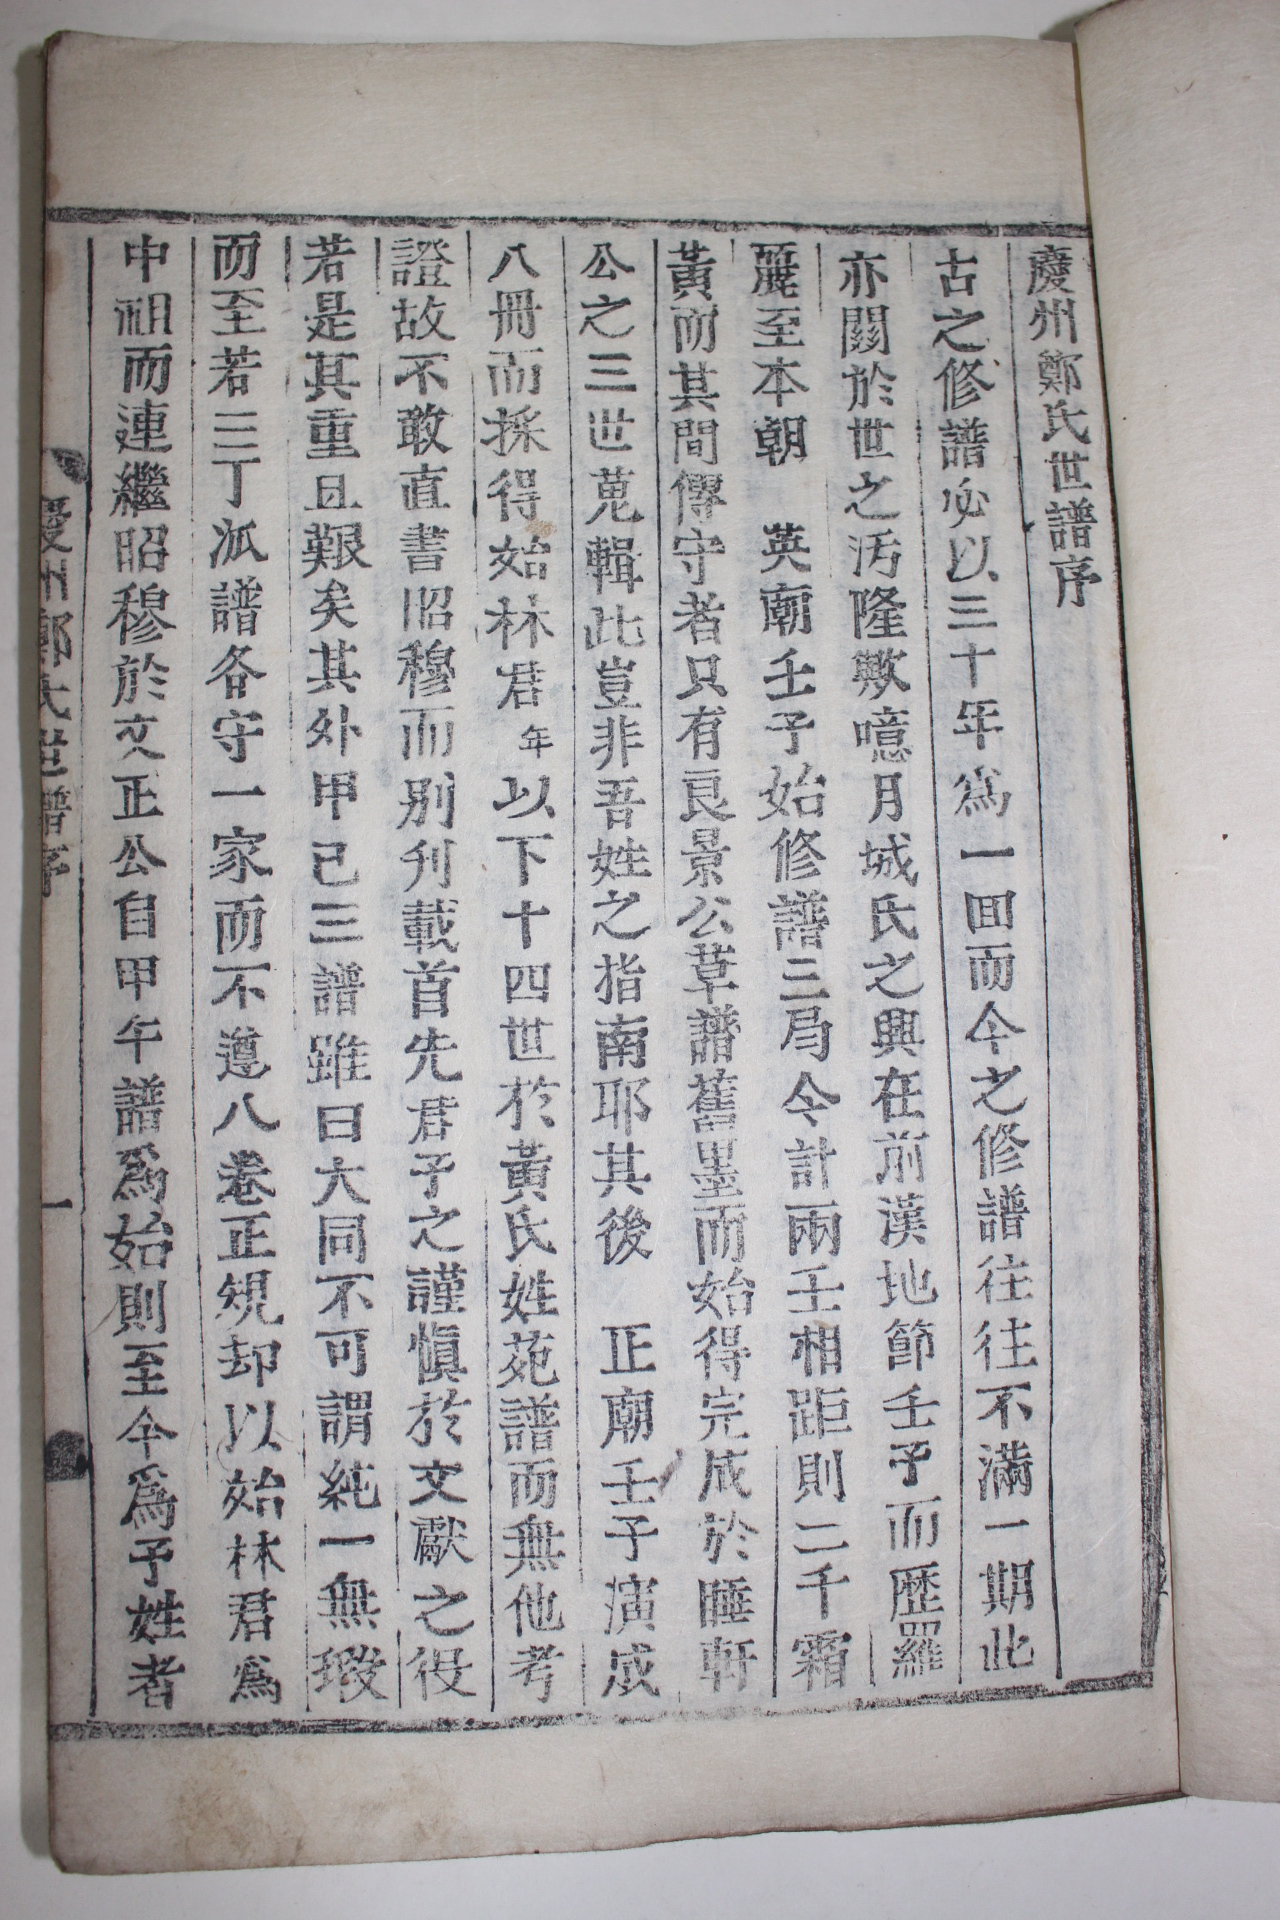 慶州鄭氏世譜序
古之修譜必以三十年爲一回而今之修譜往往不滿一期此
亦關於世之汚隆歟噫月城氏之興在前漢地節壬子而歷羅
麗至本朝　英廟壬子始修譜三局今計兩壬相距則二千霜
黃而其間傳守者只有良景公草譜舊墨而始得完成於睡軒
公之三世蒐輯此豈非吾姓之指南耶其後　正廟壬子演成
八冊而採得始林君年以下十四世於黃氏姓苑譜而無他考
證故不敢直書昭穆而別刊載首先君子之謹愼於文獻之役
若是其重且艱矣其外甲己三譜雖曰大同不可謂純一無瑕
而至若三丁派譜各守一家而不遵八卷正規却以始林君爲
中祖而連繼昭穆於文正公自甲午譜爲始則至今爲予姓者
慶州鄭氏世譜序
一